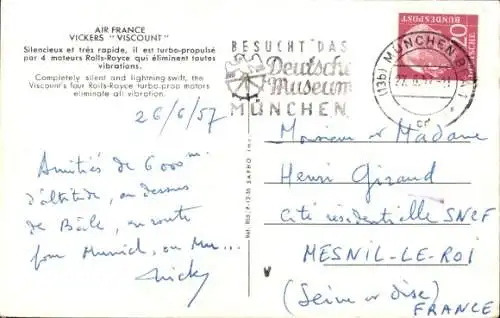 AIR FRANCE
VICKERS "VISCOUNT"
Silencieux et très rapide, il est turbo-propulsé
par 4 moteurs Rolls-Royce qui éliminent toutes
vibrations.
Completely silent and lightning-swift, the
Viscount's four Rolls-Royce turbo-prop motors
eliminate all vibration.
BESUCHT DAS
Deutsche
Museum
MÜNCHEN
(13b) MÜNCHEN
cd
20
BUNDESPOST
26/6/57
Amitiés de 6000 m
d'altitude, au dessus
de Bâle, en route
pour Munich, ou Mu...
Micky
Monsieur et Madame
Henri Giraud
Cité résidentielle SNCF
MESNIL-LE-ROI
(Seine et Oise)
FRANCE